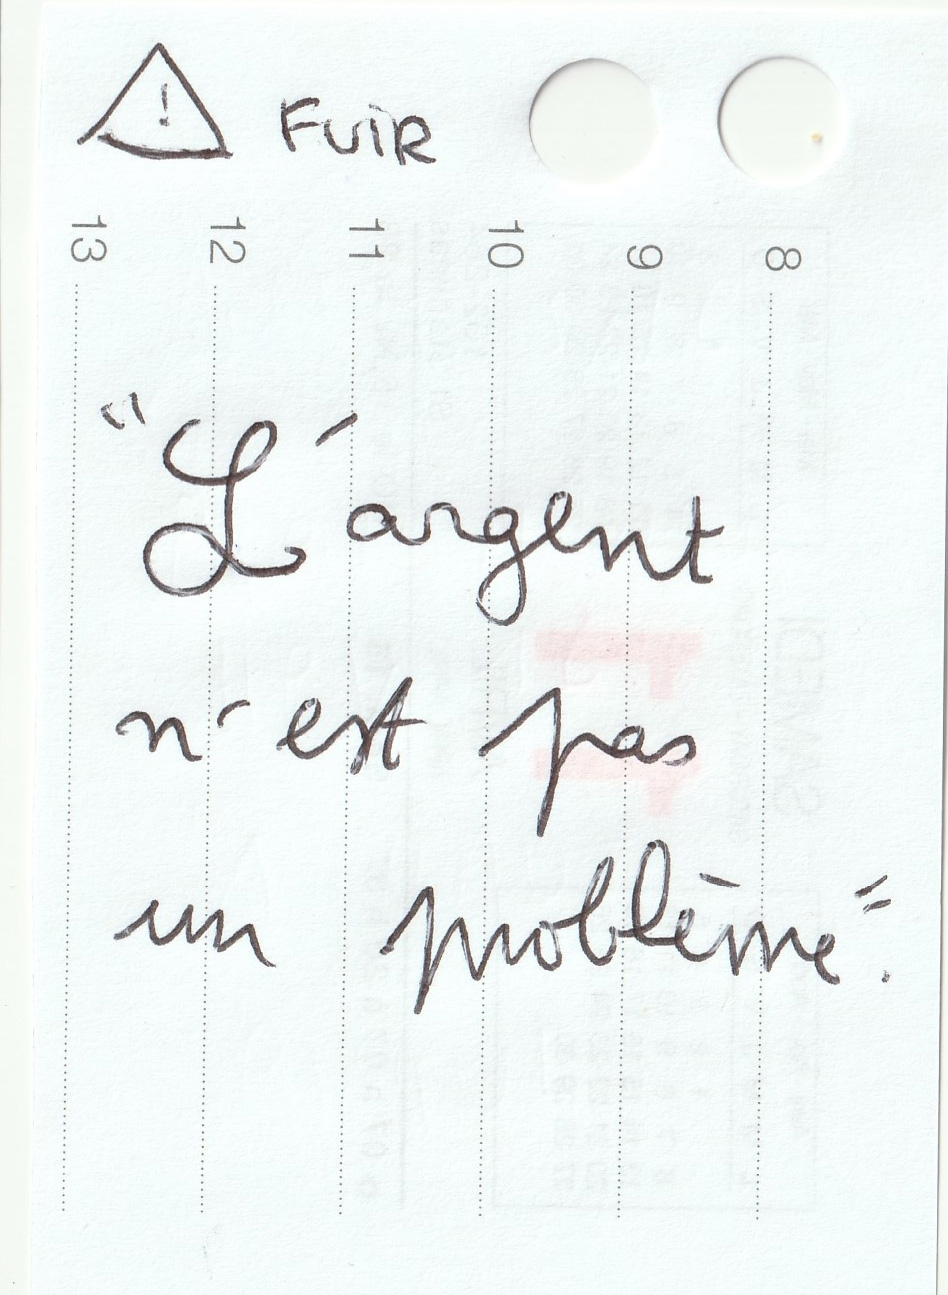 ! FUIR
13 12 11 10 9 8
"L'argent
n'est pas
un problème".
SAMEDI
11